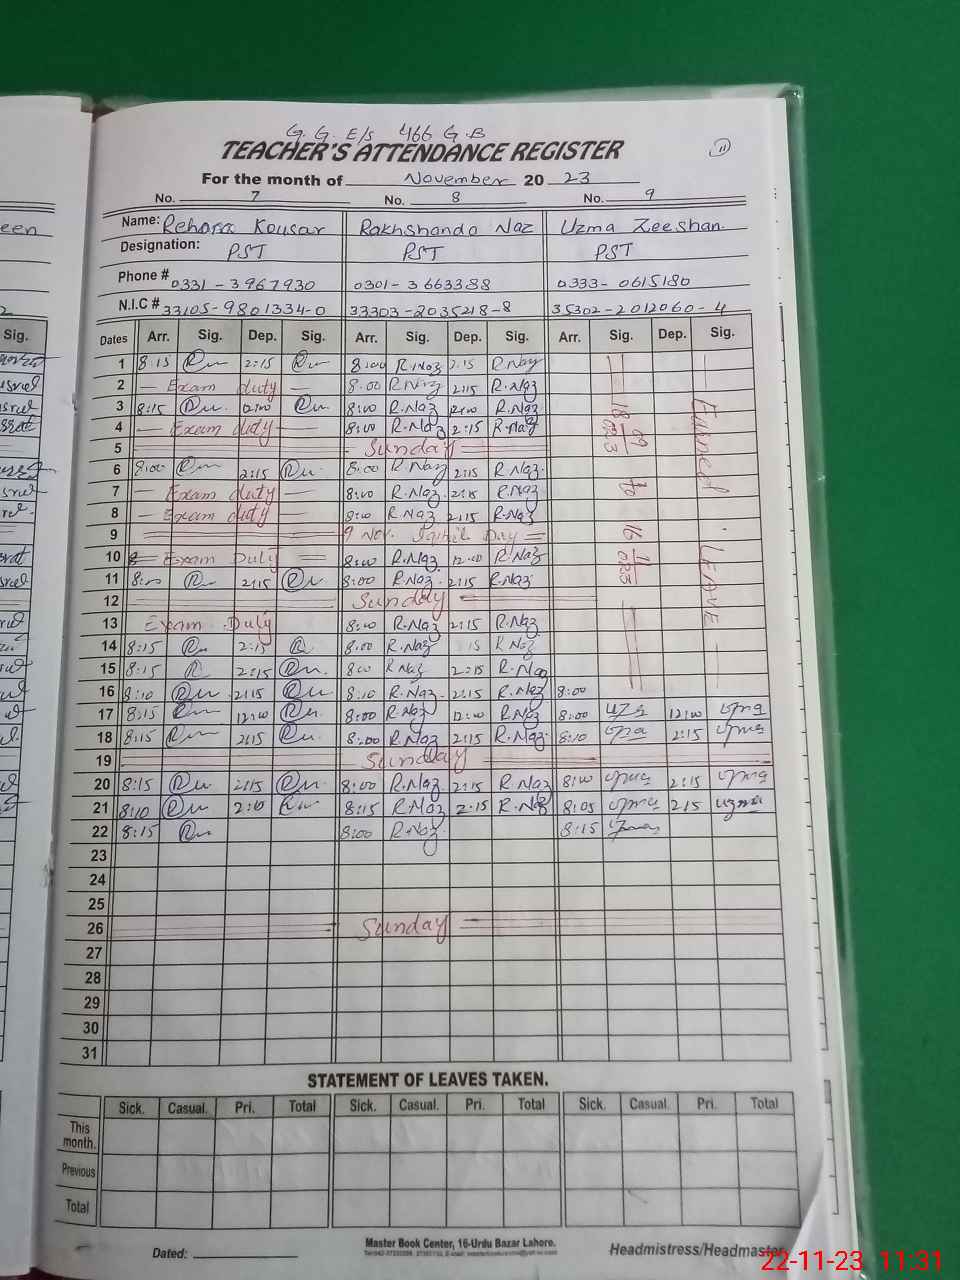 G. G. E/S 466 G.B
TEACHER'S ATTENDANCE REGISTER
11
For the month of November 20 23
No. 7 No. 8 No. 9
Name: Kousar Rakhshanda Naz Uzma Zeeshan.
Designation: PST PST PST
Phone # 0331-3967930 0301-3663388 0333-0615180
N.I.C # 33105-9801334-0 33303-2035218-8 35302-2012060-4
Dates Arr. Sig. Dep. Sig. Arr. Sig. Dep. Sig. Arr. Sig. Dep. Sig.
1 8:15 2:15 8:00 R.Naz 2:15 R.Naz
2 Exam duty 8:00 R.Naz 2:15 R.Naz
3 8:15 12:00 8:00 R.Naz 12:00 R.Naz
4 Exam duty 8:00 R.Naz 2:15 R.Naz
5 Sunday
6 8:00 2:15 8:00 R.Naz 2:15 R.Naz
7 Exam duty 8:00 R.Naz 2:15 R.Naz
8 Exam duty 8:00 R.Naz 2:15 R.Naz
9 9 Nov. Iqbal Day
10 Exam Duty 8:00 R.Naz 12:00 R.Naz
11 8:00 2:15 8:00 R.Naz 2:15 R.Naz
12 Sunday
13 Exam Duty 8:00 R.Naz 2:15 R.Naz
14 8:15 2:15 8:00 R.Naz 15 R Naz
15 8:15 2:15 800 R Naz 2:15 R.Naz
16 8:10 2:15 8:10 R.Naz 2:15 R.Naz 8:00
17 8:15 12:00 8:00 R.Naz 12:00 R.Naz 8:00 12:00
18 8:15 2:15 8:00 R.Naz 2:15 R.Naz 8:10 2:15
19 Sunday
20 8:15 2:15 8:00 R.Naz 2:15 R.Naz 8:00 2:15
21 8:10 2:10 8:15 R.Naz 2:15 R.Naz 8:05 215 uzma
22 8:15 8:00 R.Naz 8:15
23
24
25
26 Sunday
27
28
29
30
31
Earned LEAVE
STATEMENT OF LEAVES TAKEN.
Sick. Casual. Pri. Total Sick. Casual. Pri. Total Sick. Casual. Pri. Total
This month.
Previous
Total
Dated:
Master Book Center, 16-Urdu Bazar Lahore.
Headmistress/Headmaster
22-11-23 11:31